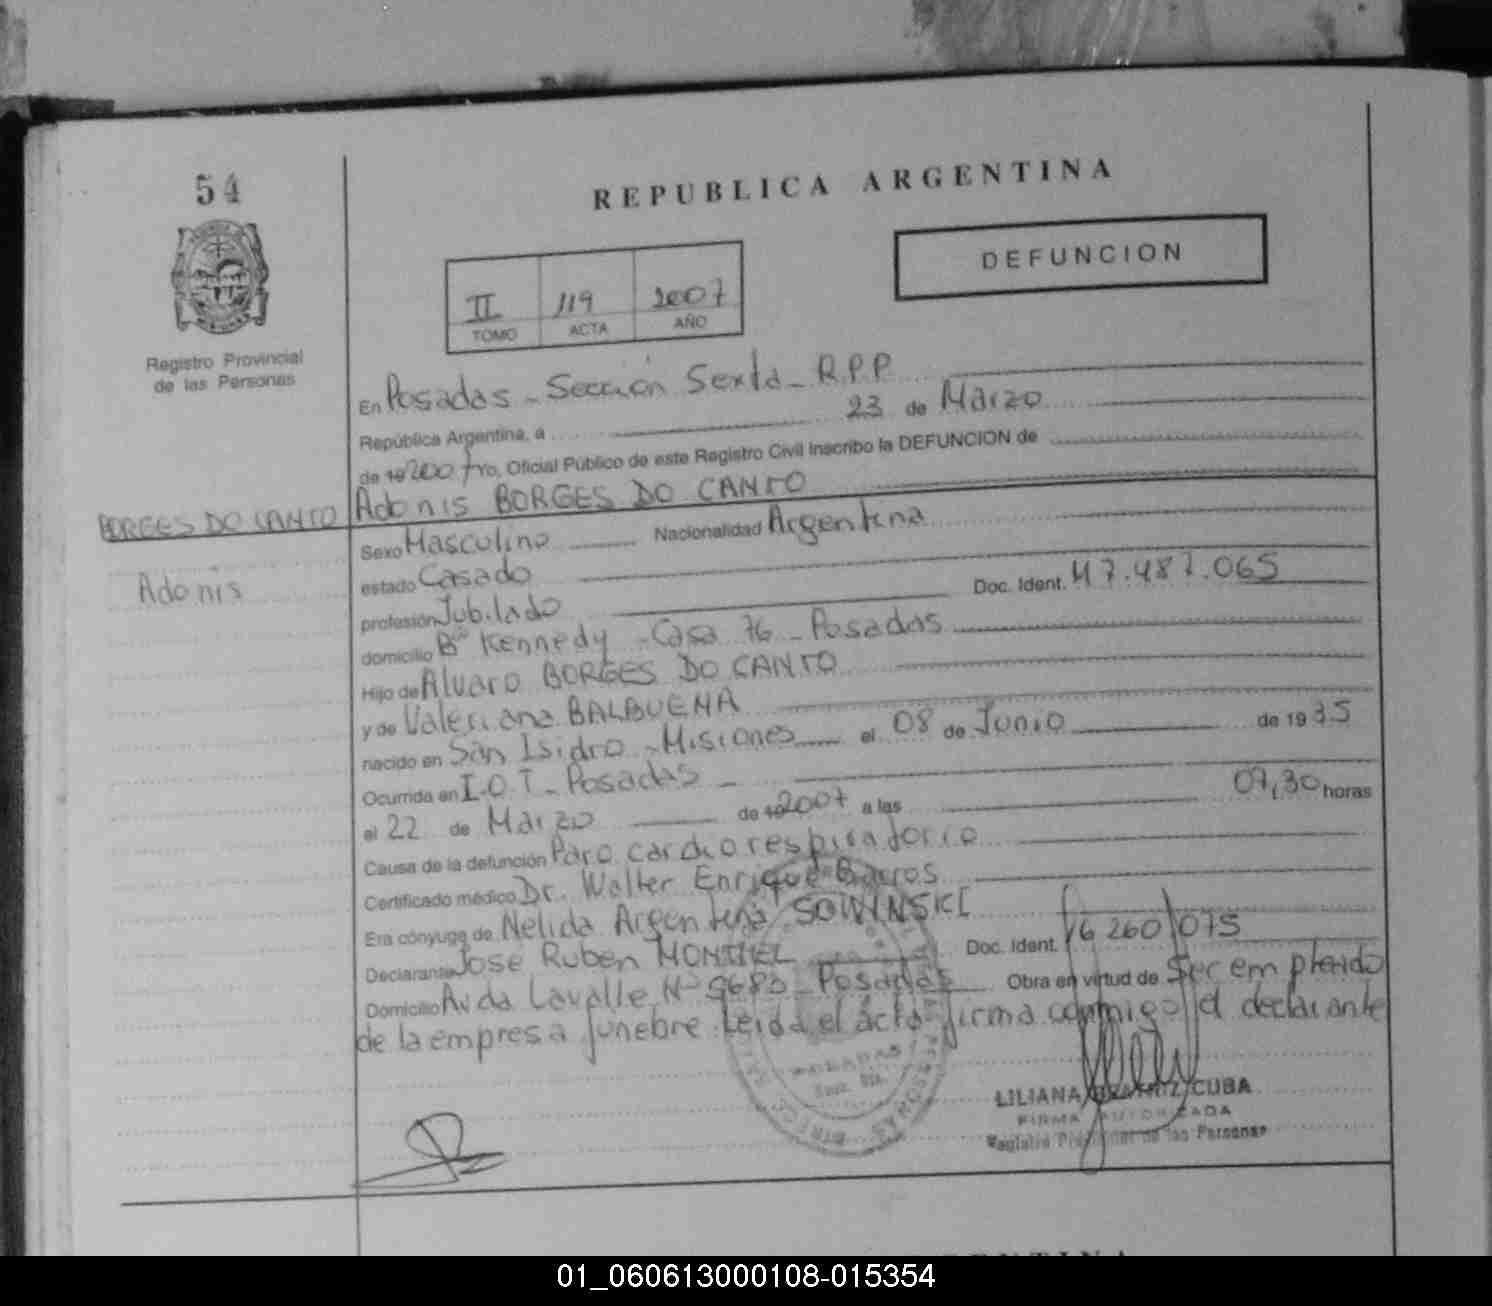 54
REPUBLICA ARGENTINA
DEFUNCION
II 119 2007
TOMO ACTA AÑO
Registro Provincial
de las Personas
En Posadas - Sección Sexta - R.P.P.
República Argentina, a 23 de Marzo
de 19 2007 yo, Oficial Público de este Registro Civil Inscribo la DEFUNCION de
BORGES DO CANTO Adonis BORGES DO CANTO
Sexo Masculino Nacionalidad Argentina
Adonis
estado Casado
profesión Jubilado Doc. Ident. M 7.487.065
domicilio Bº Kennedy - Casa 76 - Posadas
Hijo de Alvaro BORGES DO CANTO
y de Valeriana BALBUENA
nacido en San Isidro - Misiones el 08 de Junio de 1935
Ocurrida en I.O.T - Posadas -
el 22 de Marzo de 19 2007 a las 07,30 horas
Causa de la defunción Paro cardiorespiratorio
Certificado médico Dr. Walter Enrique Barros
Era cónyuge de Nelida Argentina SOWINSKI
Declarante Jose Ruben MONTIEL Doc. Ident. 16 260 075
Domicilio Avda Lavalle Nº 5683 - Posadas Obra en virtud de Ser empleado
de la empresa funebre. Leida el acta firma conmigo el declarante
POSADAS
LILIANA BEATRIZ CUBA
FIRMA AUTORIZADA
Registro Provincial de las Personas
01_060613000108-015354